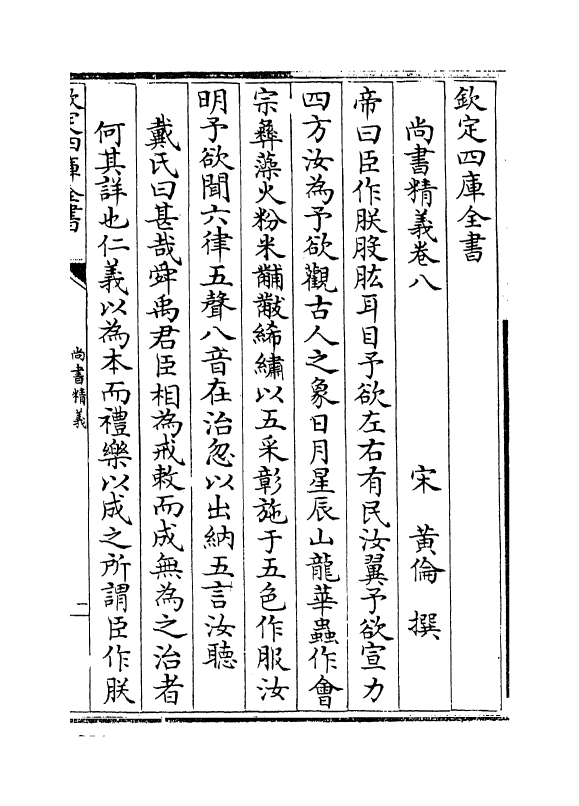 欽定四庫全書
尚書精義卷八
宋 黃倫 撰
帝曰臣作朕股肱耳目予欲左右有民汝翼予欲宣力
四方汝為予欲觀古人之象日月星辰山龍華蟲作會
宗彝藻火粉米黼黻絺繡以五采彰施于五色作服汝
明予欲聞六律五聲八音在治忽以出納五言汝聽
戴氏曰甚哉舜禹君臣相為戒敕而成無為之治者
何其詳也仁義以為本而禮樂以成之所謂臣作朕
欽定四庫全書
尚書精義
一